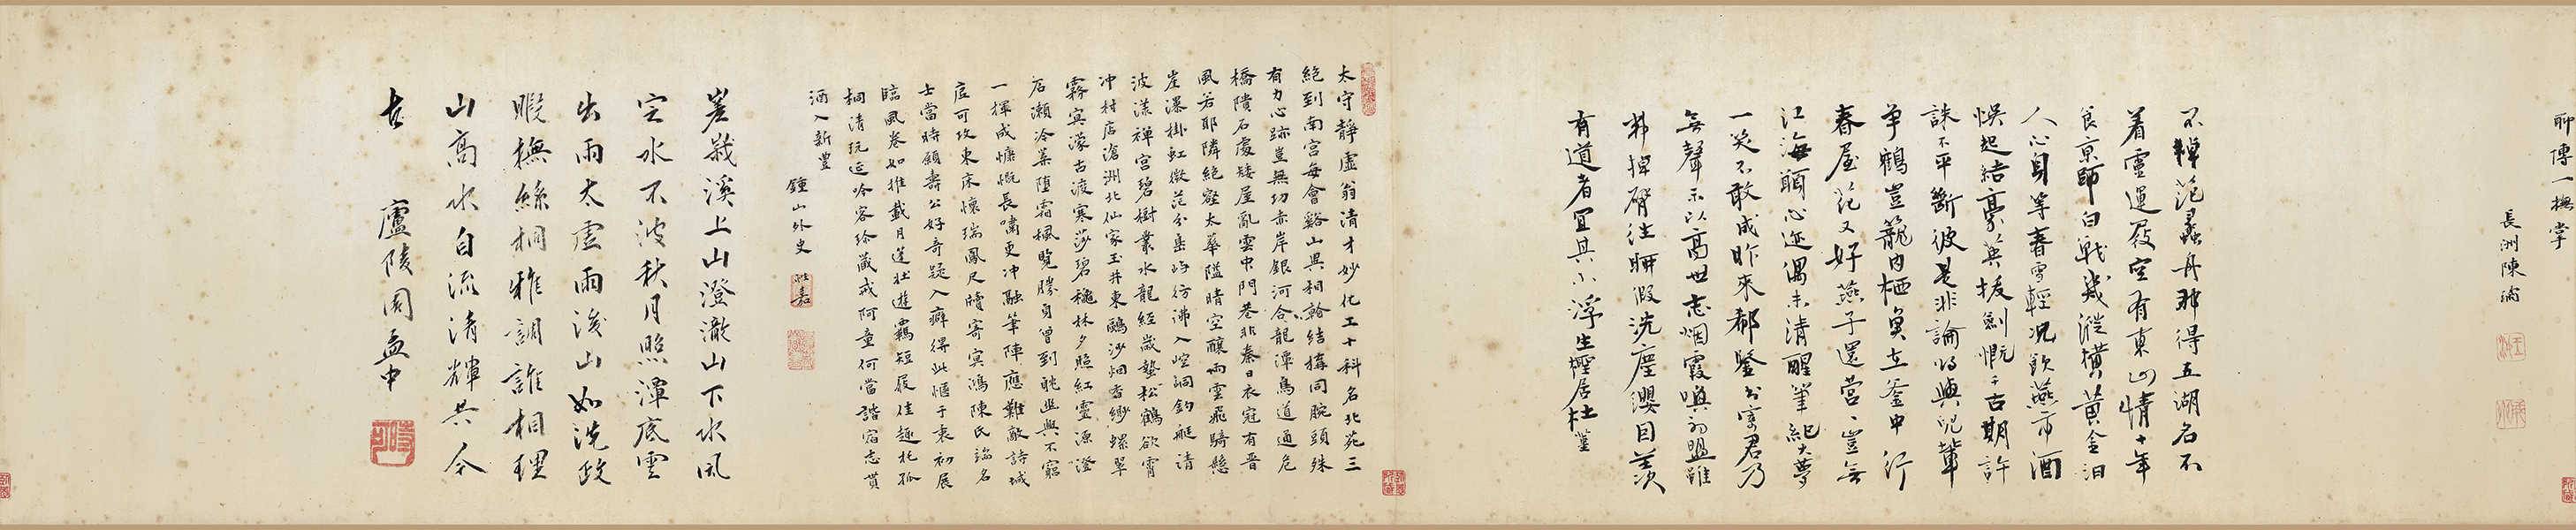 聊傳一撫掌
長洲陳瑞
不韓范蠡舟那得五湖名不
着靈運屐空有東山情十年
食京師白戰幾縱橫黃金汩
人心身等春雪輕況飲燕市酒
悞起結豪英拔劍慨千古期許
誅不平斷彼是非論將與児輩
爭鶴豈籠內栖奠立釜中行
春屋花又好燕子還營〻豈無
江海願心迹偶未清醒筆紀大夢
一笑不敢成昨來鄰墅書寄君乃
無聲示以高世志烟霞與初盟雖
掉臂往聊假洗塵纓因羨
有道者
太守靜虛翁清才妙化工十科名北苑三
絕到南宮每會谿山興相翰結搆同腕頭殊
有力心跡豈無功赤岸銀河合龍潭鳥道通危
橋隤石處矮屋亂雲中門巷非秦日衣冠有晉
風若耶隣絕壑太華隘晴空釀雨雲飛騎懸
崖瀑掛虹微茫分島嶼彷彿入崆峒釣艇清
波漾禪宮碧樹叢水龍經歲蟄松鶴欲霄
冲村店滄洲北仙家玉井東鷗沙烟香緲螺翠
霧冥濛古渡寒莎碧穐林夕照紅靈源澄
石瀨冷葉墮霜楓覽勝身曾到耽幽興不窮
一揮成慷慨長嘯更冲融筆陣應難敵詩城
豈可攻東床懷瑞鳳尺牘寄冥鴻陳氏論名
士當時願壽公好奇疑入癖得此愜于衷初展
臨風卷如推載月篷壯遊羈短屐佳趣托孤
桐清玩延吟客珍藏戒阿童何當諧宿志貰
酒入新豐
鍾山外史
差峩溪上山澄澈山下水風
定水不波秋月照潭底雲
出雨太虛雨後山如洗政
暇撫絲桐雅調誰相理
山高水自流清輝共今
古
廬陵周孟中